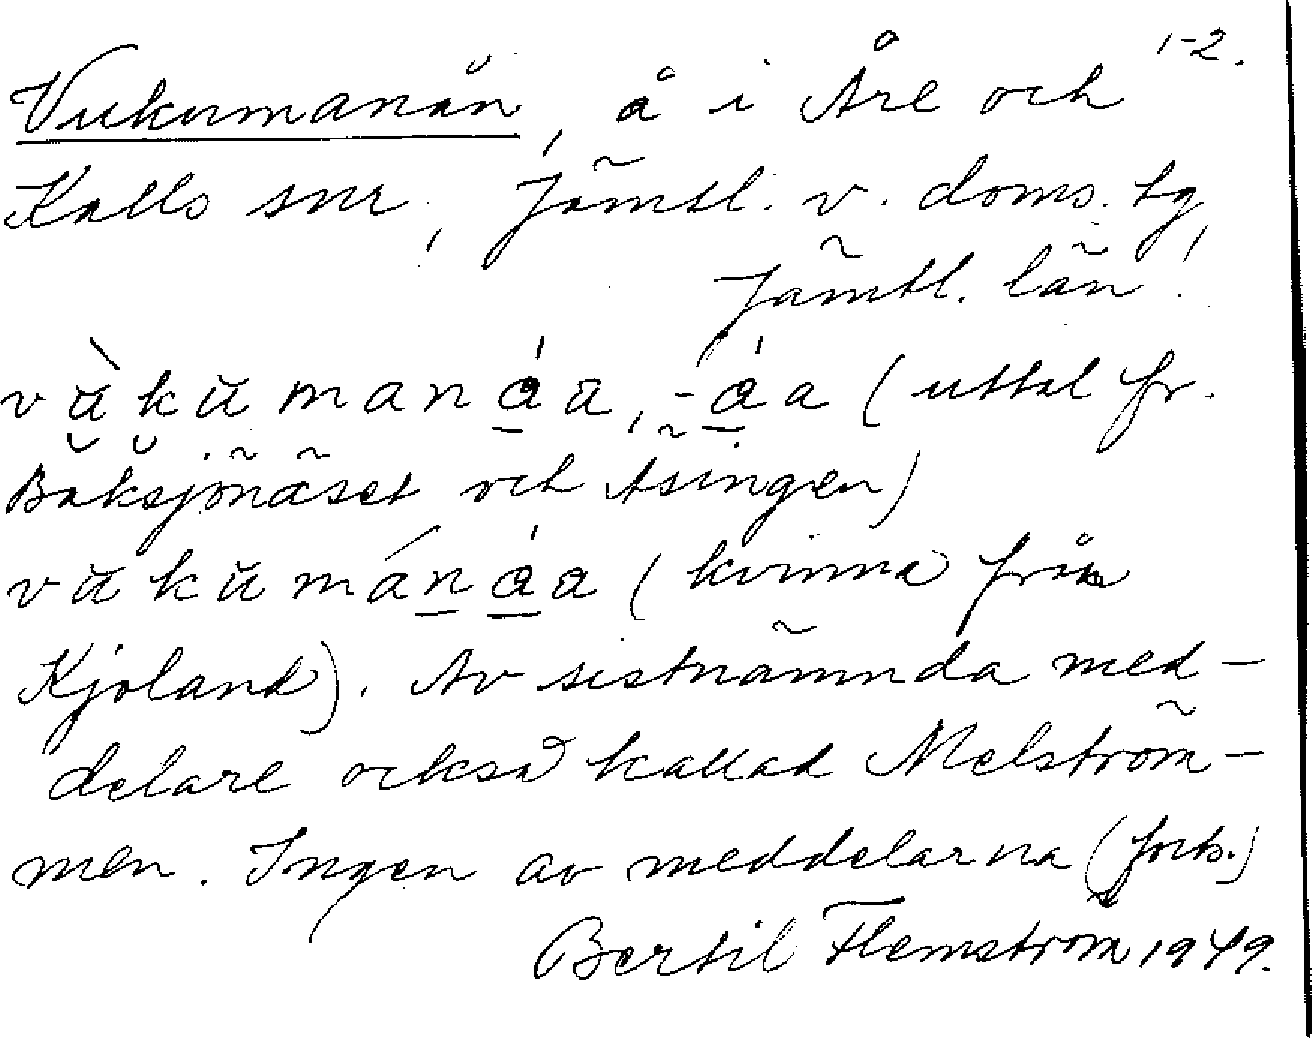 1-2.
Vukumanån, å i Åre och
Kalls snr, Jämtl. v. doms. tg,
Jämtl. län.
vùkŭmanåa, -åa (uttal fr.
Baksjönäset och Äsingen)
vŭkŭmánåa (kvinna från
Kjoland). Av sistnämnda med-
delare också kallad Melström-
men. Ingen av meddelarna (forts.)
Bertil Flemström 1949.